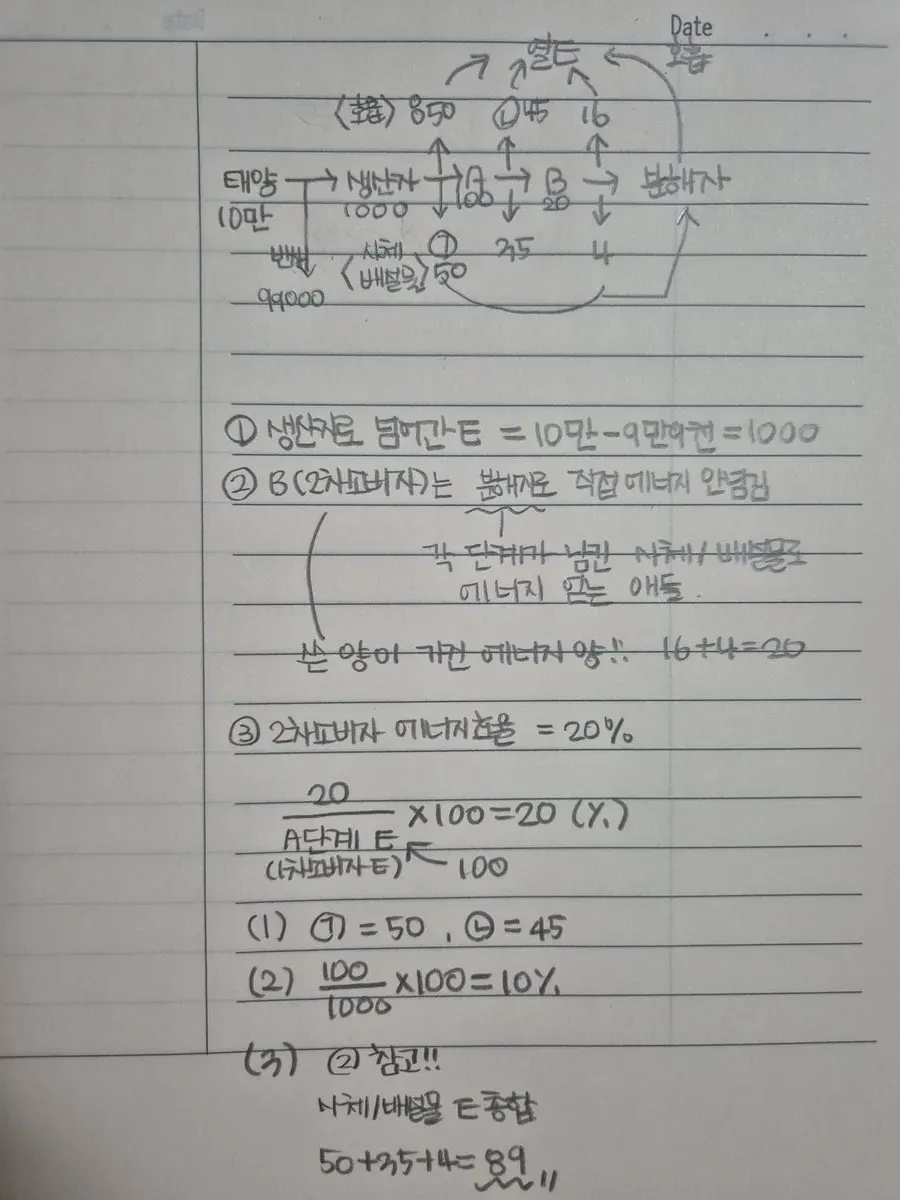 Date
열E 호흡
〈호흡〉 850 ㉡45 16
태양 → 생산자 → A → B → 분해자
10만 1000 100 20
반사 〈사체 배설물〉 ㉠ 50 35 4
99000
① 생산자로 넘어간 E = 10만-9만9천=1000
② B(2차소비자)는 분해자로 직접 에너지 안넘김
각 단계가 남긴 사체/배설물로
에너지 얻는 애들.
쓴 양이 가진 에너지 양!! 16+4=20
③ 2차소비자 에너지효율 = 20%
20
A단계 E ×100=20 (%)
(1차소비자 E) 100
(1) ㉠ = 50 , ㉡ = 45
(2) 100/1000 ×100=10%
(3) ② 참고!!
사체/배설물 E 총합
50+35+4=89